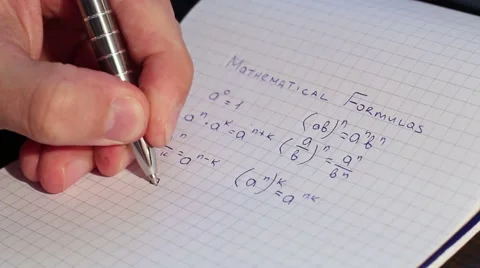 Mathematical Formulas
a⁰ = 1
aⁿ · aᵏ = aⁿ⁺ᵏ
ⁿ/ₖ = aⁿ⁻ᵏ
(ab)ⁿ = aⁿbⁿ
(a/b)ⁿ = aⁿ/bⁿ
(aⁿ)ᵏ = aⁿᵏ